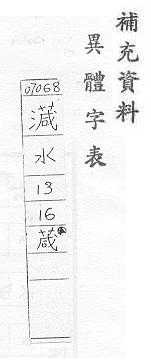 補充資料
異體字表
07068
水
13
16